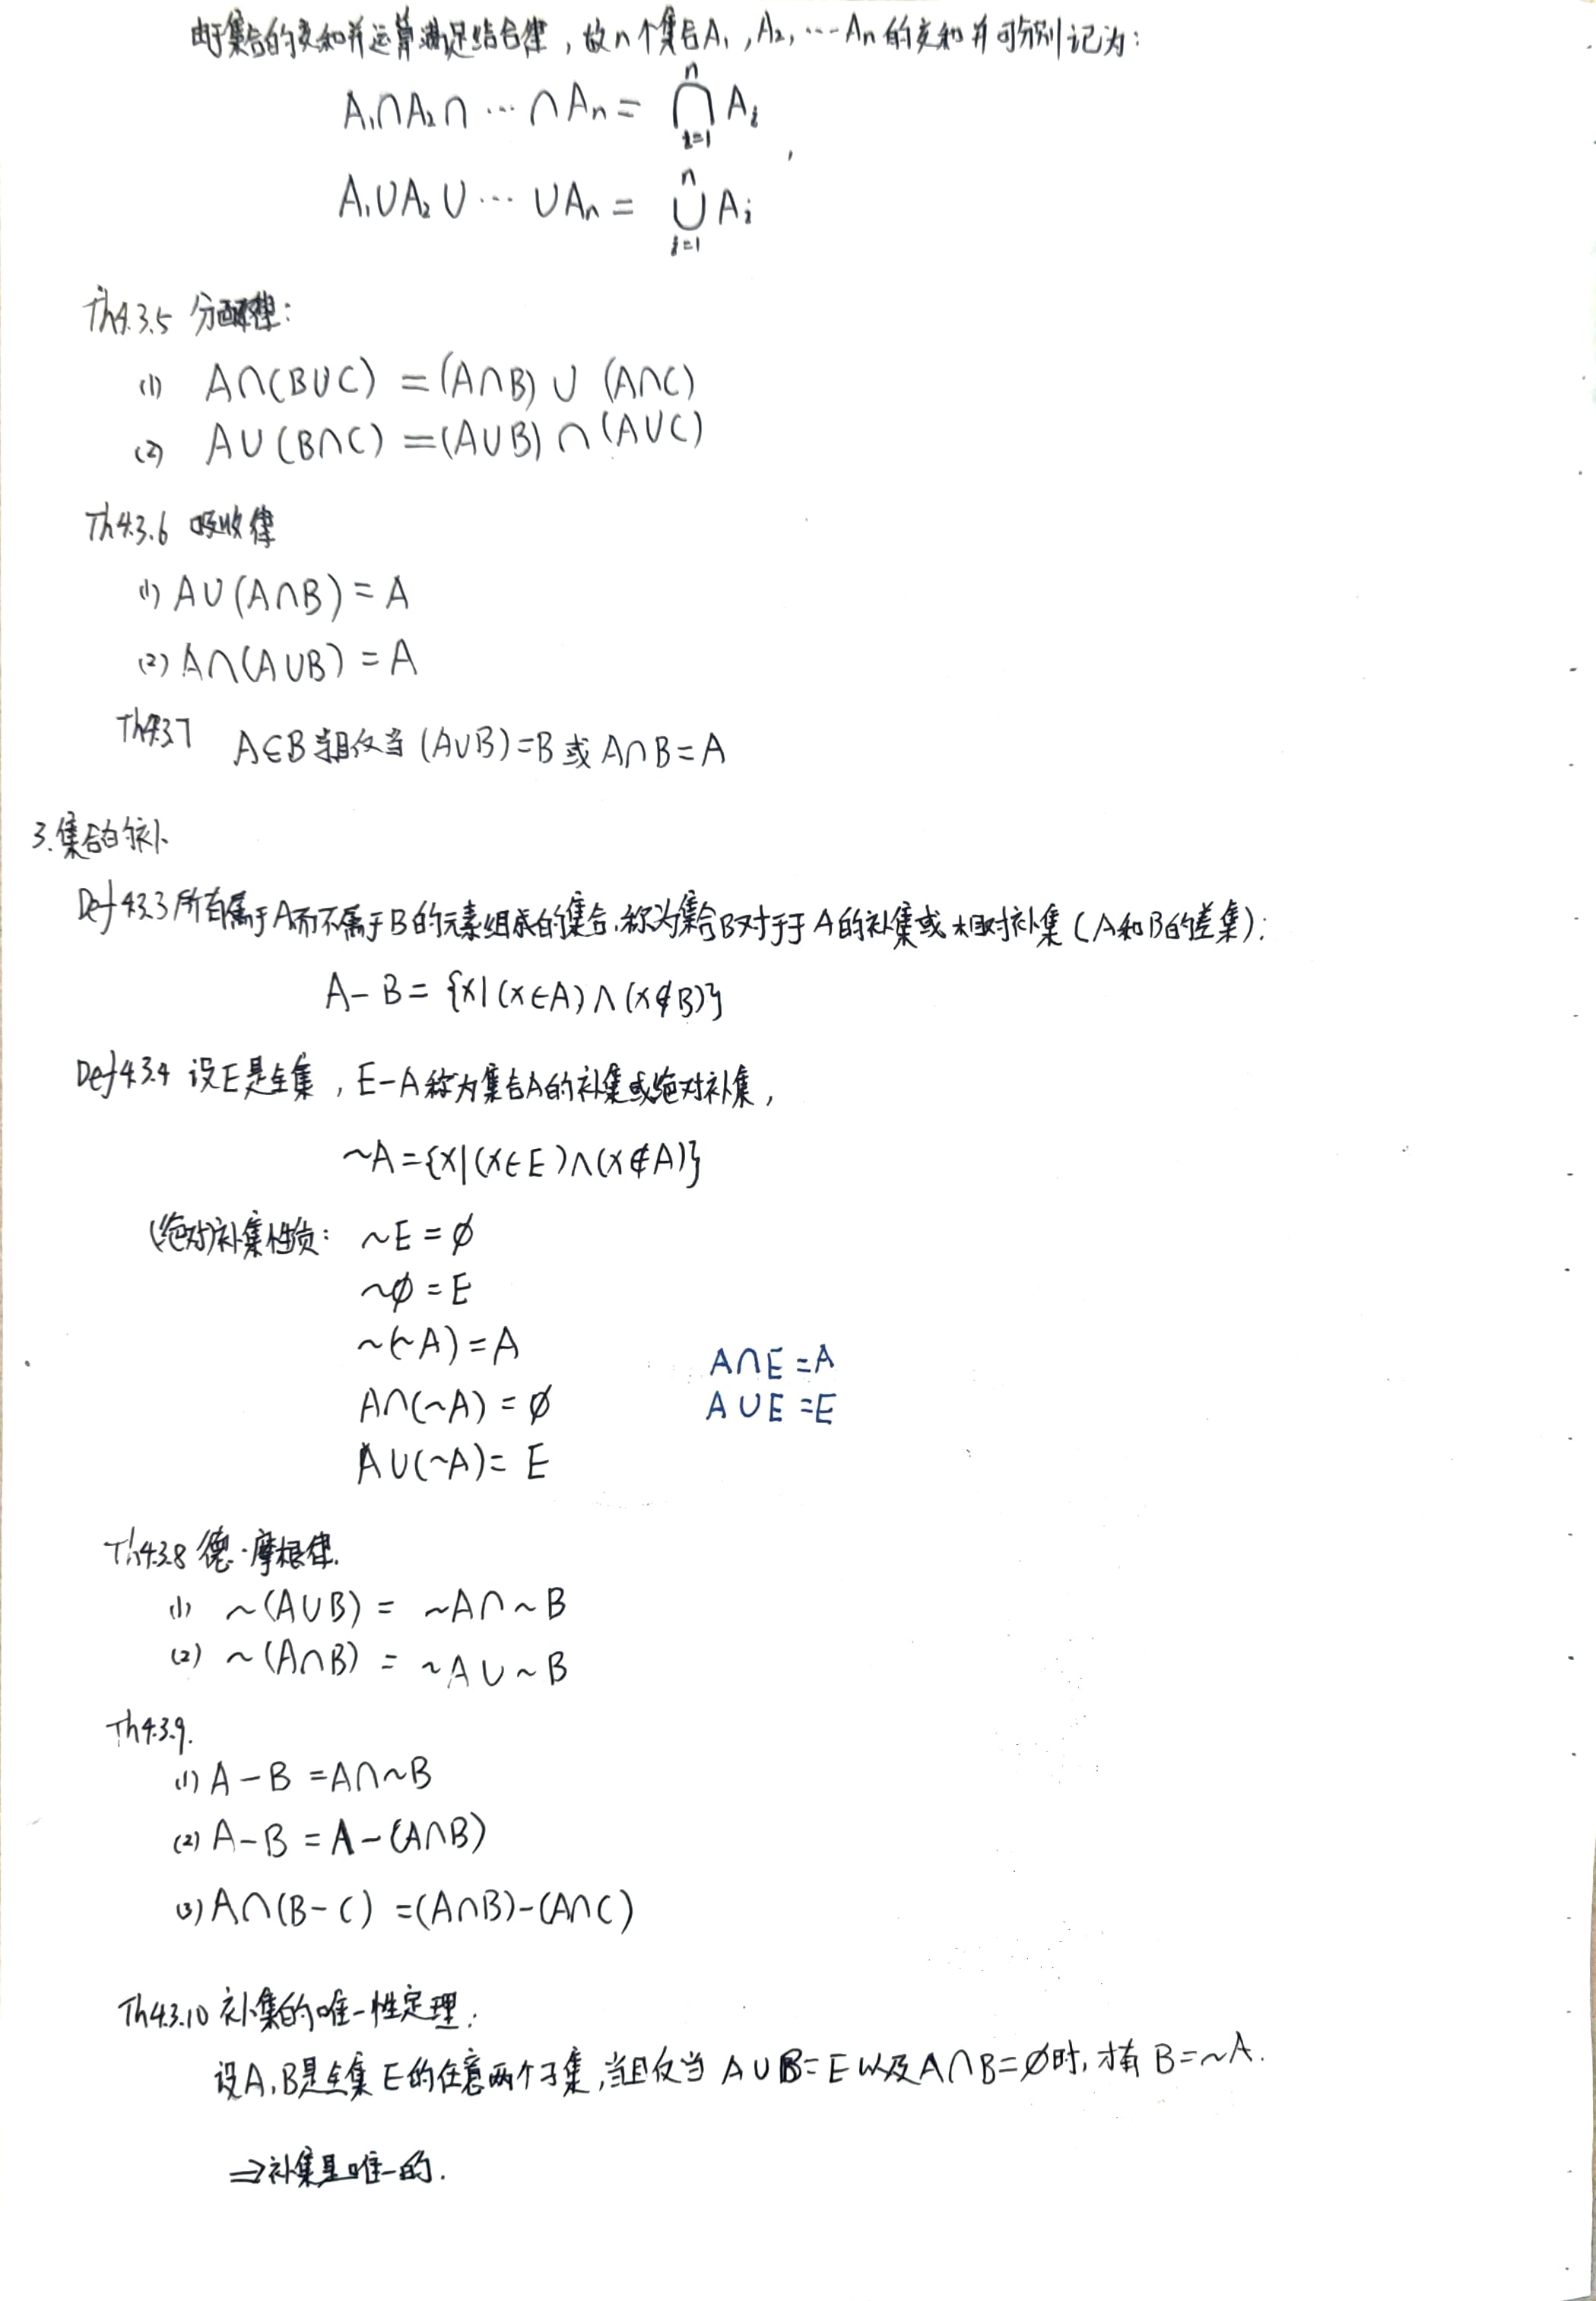 由于集合的交和并运算满足结合律，故n个集合A₁，A₂，…Aₙ的交和并可分别记为：
A₁∩A₂∩ … ∩Aₙ = ⋂ⁿᵢ₌₁ Aᵢ ,
A₁∪A₂∪ … ∪Aₙ = ⋃ⁿᵢ₌₁ Aᵢ
Th4.3.5 分配律：
(1) A∩(B∪C) = (A∩B) ∪ (A∩C)
(2) A∪(B∩C) = (A∪B) ∩ (A∪C)
Th4.3.6 吸收律
(1) A∪(A∩B) = A
(2) A∩(A∪B) = A
Th4.3.7 A⊆B 当且仅当 (A∪B)=B 或 A∩B=A
3.集合的补
Def 4.3.3 所有属于A而不属于B的元素组成的集合，称为集合B对于于A的补集或相对补集（A和B的差集）：
A-B = {x|(x∈A)∧(x∉B)}
Def 4.3.4 设E是全集，E-A称为集合A的补集或绝对补集，
~A={x|(x∈E)∧(x∉A)}
(绝对)补集性质： ~E = ∅
~∅ = E
~(~A) = A
A∩E =A
A∩(~A) = ∅
A∪E =E
A∪(~A)= E
Th4.3.8 德·摩根律.
(1) ~(A∪B) = ~A∩~B
(2) ~(A∩B) = ~A∪~B
Th4.3.9.
(1) A-B =A∩~B
(2) A-B = A-(A∩B)
(3) A∩(B-C) =(A∩B)-(A∩C)
Th4.3.10 补集的唯一性定理：
设A,B是全集E的任意两个子集,当且仅当 A∪B=E以及A∩B=∅时,才有B=~A.
⇒补集是唯一的.